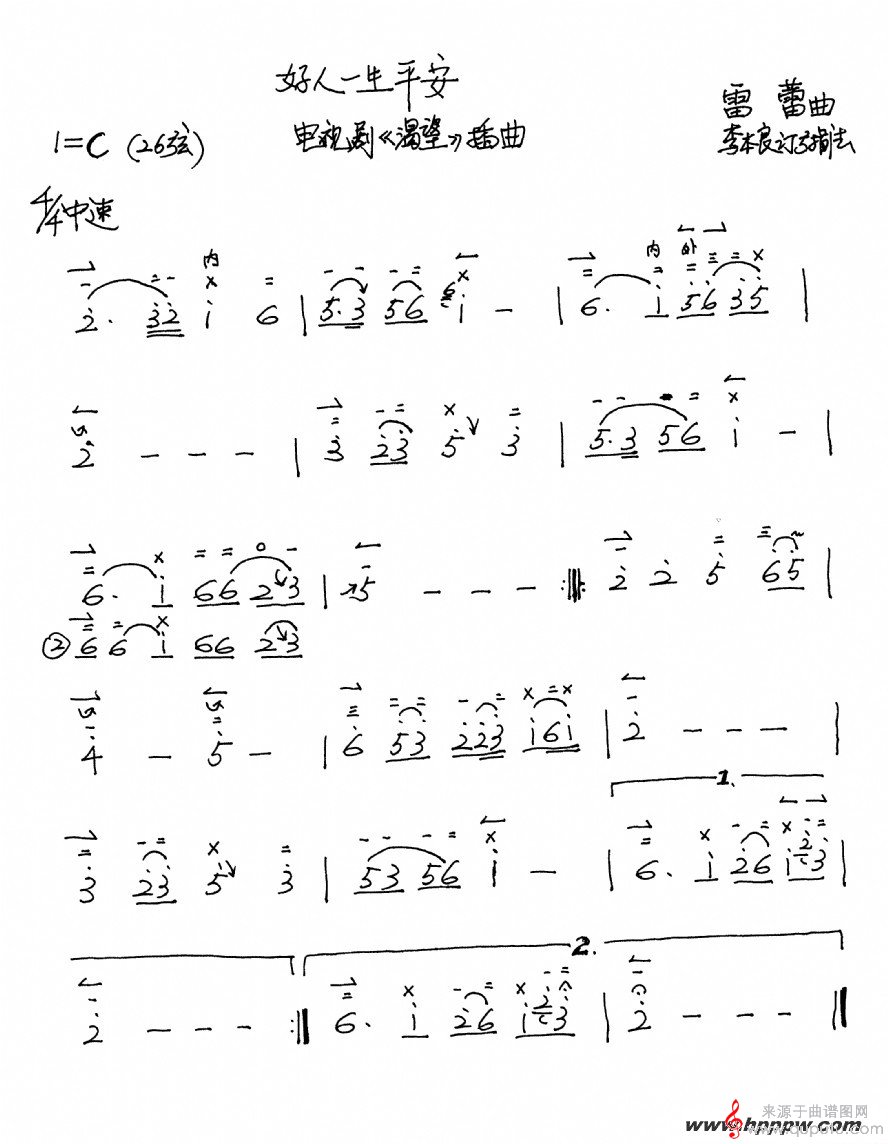 好人一生平安
雷 蕾曲
1=C (26弦)
电视剧《渴望》插曲
李本良订指法
4/4中速
内
内 外
2. 32 1 6 | 5.3 56 6 1 - | 6. 1 56 35 |
2 - - - | 3 23 5 3 | 5.3 56 1 - |
6. 1 66 23 | 5 - - - :||: 2 2 5 65 |
② 6 6 1 66 23
4 - 5 - | 6 53 223 161 | 2 - - - |
1.
3 23 5 3 | 53 56 1 - | 6. 1 26 1 2 3 |
2.
2 - - - :|| 6. 1 26 1 2 3 | 2 - - - ||
来源于曲谱图网
www.hnppw.com
www.qupotu.com